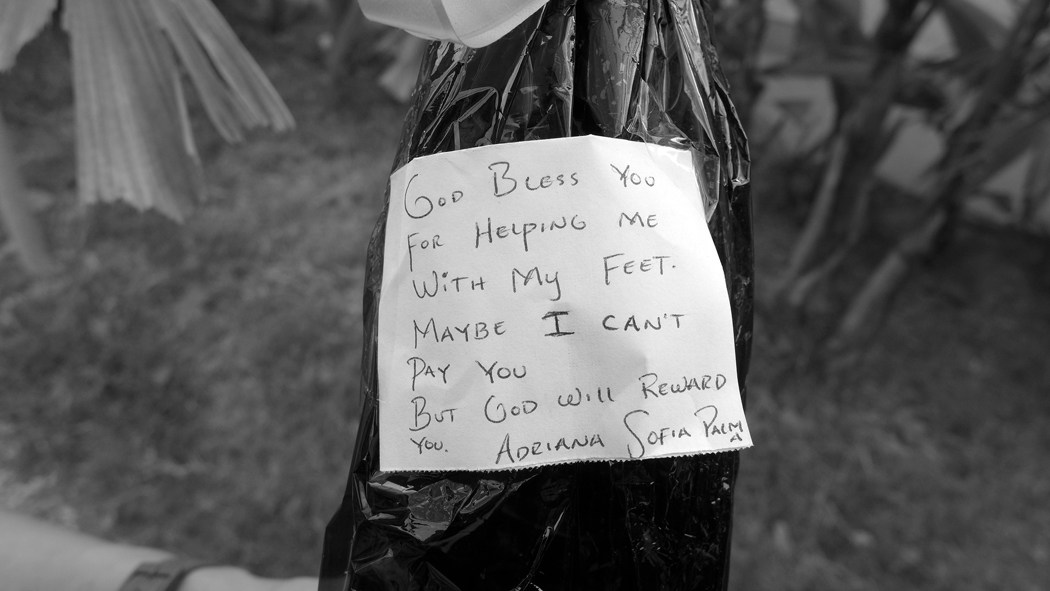 GOD BLESS YOU
FOR HELPING ME
WITH MY FEET.
MAYBE I CAN'T
PAY YOU
BUT GOD WILL REWARD
YOU. ADRIANA SOFIA PALMA